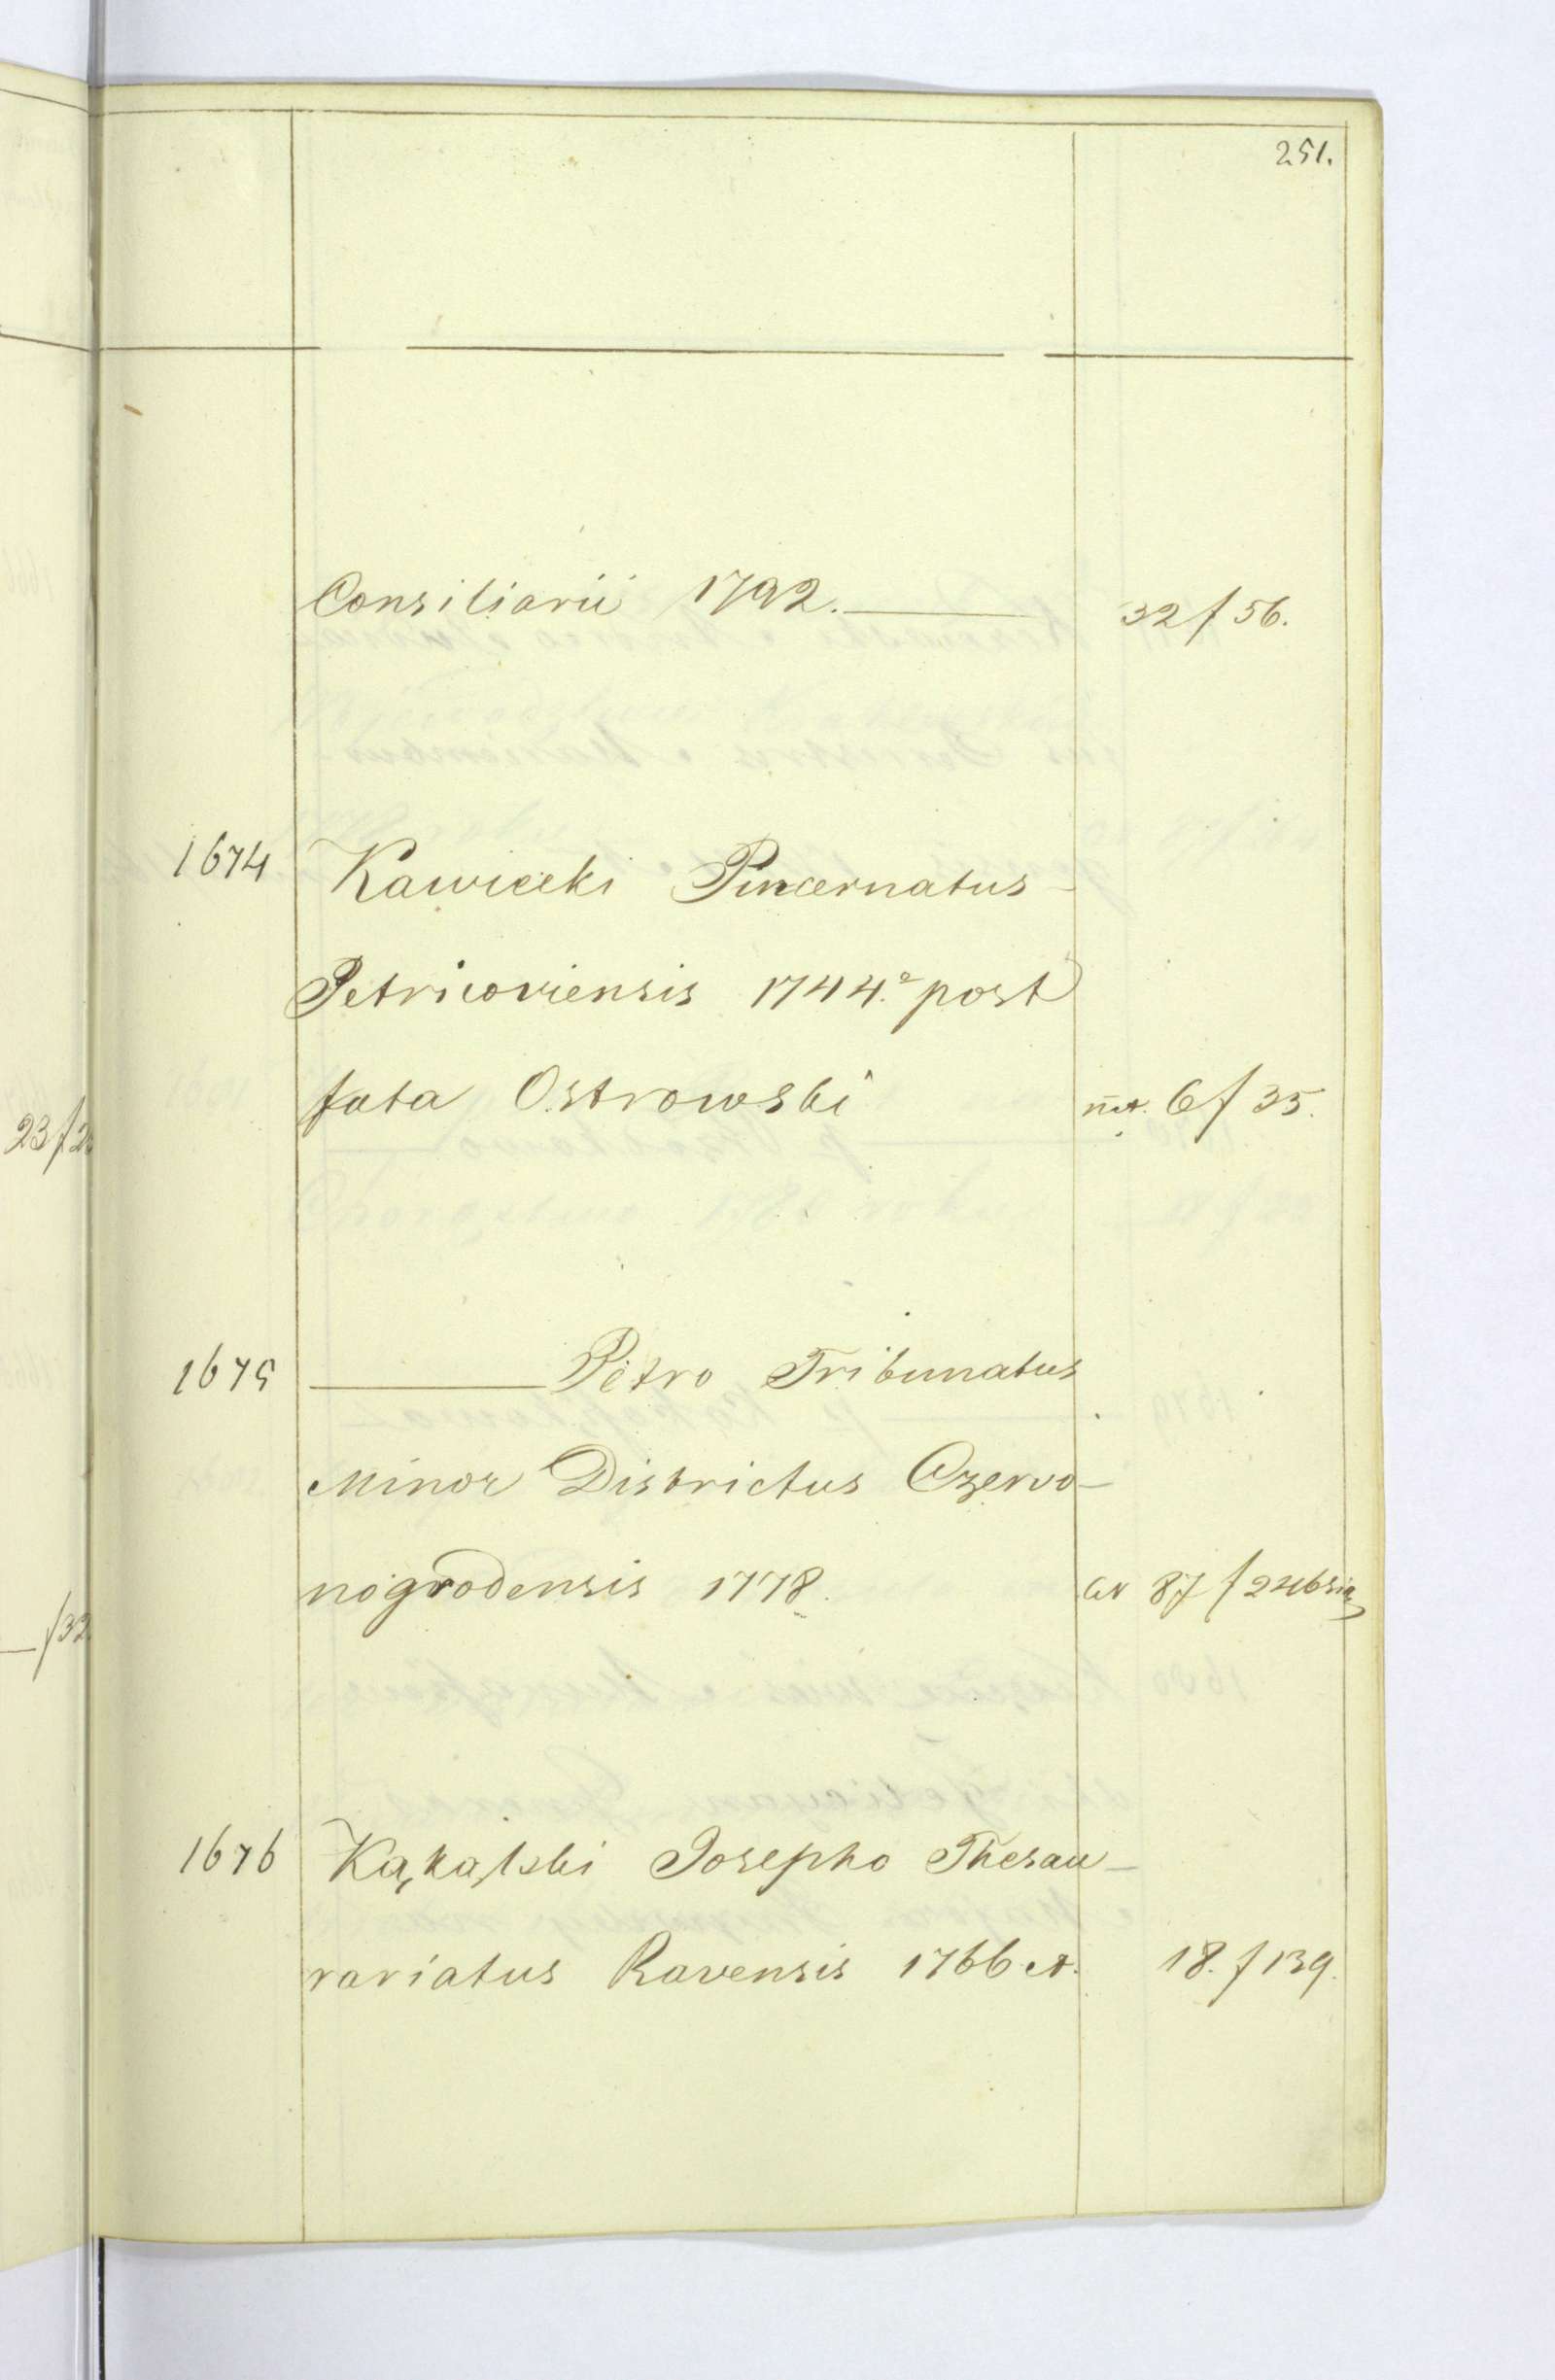 251.
Consiliarii 1792. 32 f 56.
1674 Kawiecki Pincernatus
Petricoviensis 1744. post
fata Ostrowski 6 f 35.
1675 Petro Tribunatus
Minor Districtus Czervo-
nogrodensis 1778. 87 f
1676 Kąkalski Josepho Thesau-
rariatus Ravensis 1766 et. 18. f 139.
23 f 2
f 32